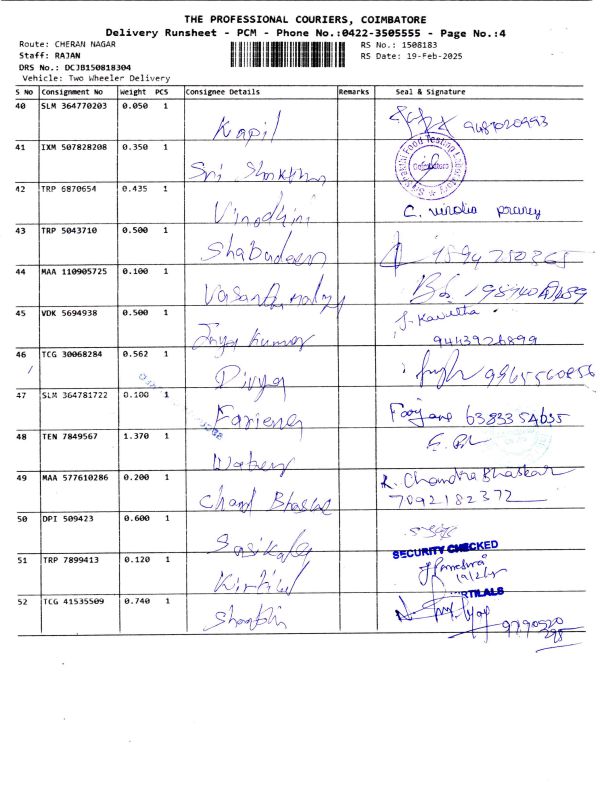 THE PROFESSIONAL COURIERS, COIMBATORE
Delivery Runsheet - PCM - Phone No.:0422-3505555 - Page No.:4
Route: CHERAN NAGAR RS No.: 1508183
Staff: RAJAN RS Date: 19-Feb-2025
DRS No.: DCJB150818304
Vehicle: Two Wheeler Delivery
S No Consignment No Weight PCS Consignee Details Remarks Seal & Signature
40 SLM 364770203 0.050 1
Kapil 9487020993
41 IXM 507828208 0.350 1
Sri Food Testing Laboratory Coimbatore
42 TRP 6870654 0.435 1
Vinodhini C.
43 TRP 5043710 0.500 1
Shabudeen
44 MAA 110905725 0.100 1
45 VDK 5694938 0.500 1
J. Kavitha
Kumar 9443926899
46 TCG 30068284 0.562 1
Divya 9965560856
47 SLM 364781722 0.100 1
Fariena 6383354635
48 TEN 7849567 1.370 1
49 MAA 577610286 0.200 1
R. Chandra Bhaskar
Chand Bhaskar 7092182372
50 DPI 509423 0.600 1
Sasikala
SECURITY CHECKED
51 TRP 7899413 0.120 1
Kirtilal 19/2/25
KIRTILALS
52 TCG 41535509 0.740 1
Shanthi 9790520
298